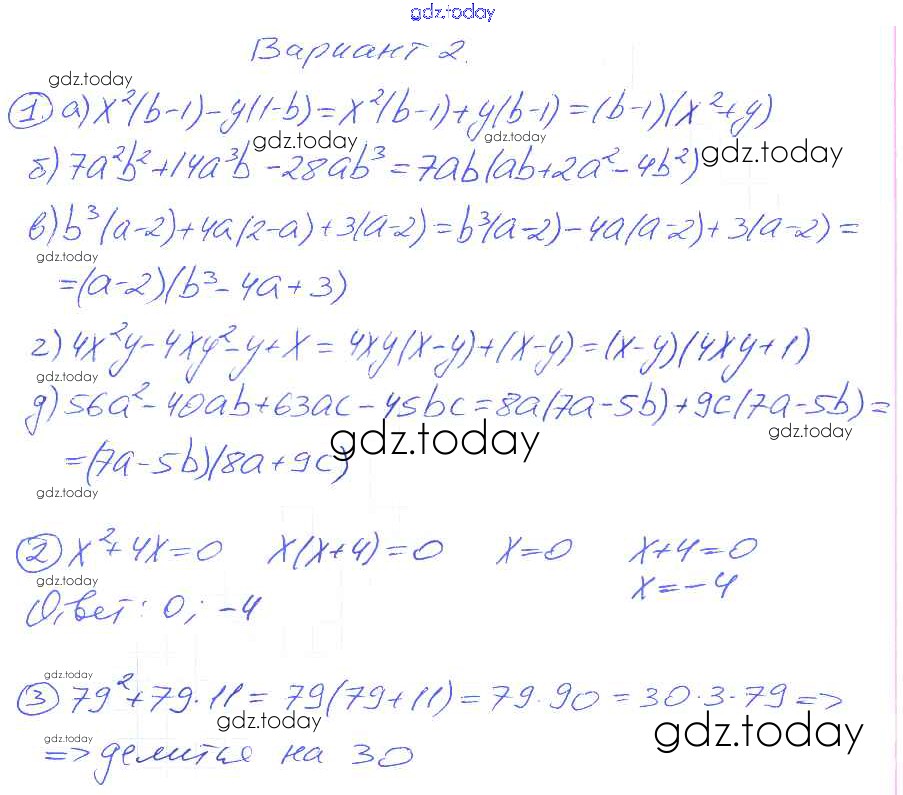 gdz.today
Вариант 2.
gdz.today
1. а) x²(b-1)-y(1-b)=x²(b-1)+y(b-1)=(b-1)(x²+y)
gdz.today gdz.today gdz.today
б) 7a²b²+14a³b-28ab³=7ab(ab+2a²-4b²)
в) b³(a-2)+4a(2-a)+3(a-2)=b³(a-2)-4a(a-2)+3(a-2)=
gdz.today
=(a-2)(b³-4a+3)
г) 4x²y-4xy²-y+x=4xy(x-y)+(x-y)=(x-y)(4xy+1)
gdz.today
д) 56a²-40ab+63ac-45bc=8a(7a-5b)+9c(7a-5b)=
gdz.today gdz.today
=(7a-5b)(8a+9c)
gdz.today
2 x²+4x=0 x(x+4)=0 x=0 x+4=0
gdz.today x=-4
Ответ: 0; -4
gdz.today
3 79²+79·11=79(79+11)=79·90=30·3·79=>
gdz.today gdz.today
gdz.today
=> делится на 30